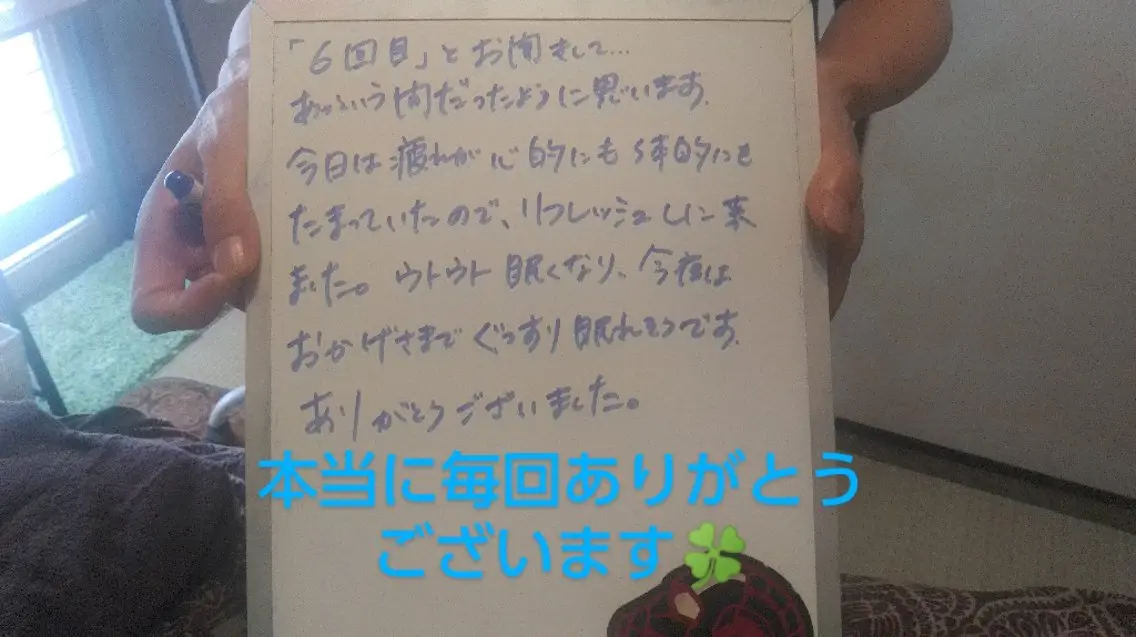 「6回目」とお聞きして…
あっという間だったように思います。
今日は疲れが心的にも体的にも
たまっていたので、リフレッシュしに来
ました。ウトウト眠くなり、今夜は
おかげさまでぐっすり眠れそうです。
ありがとうございました。
本当に毎回ありがとう
ございます🍀